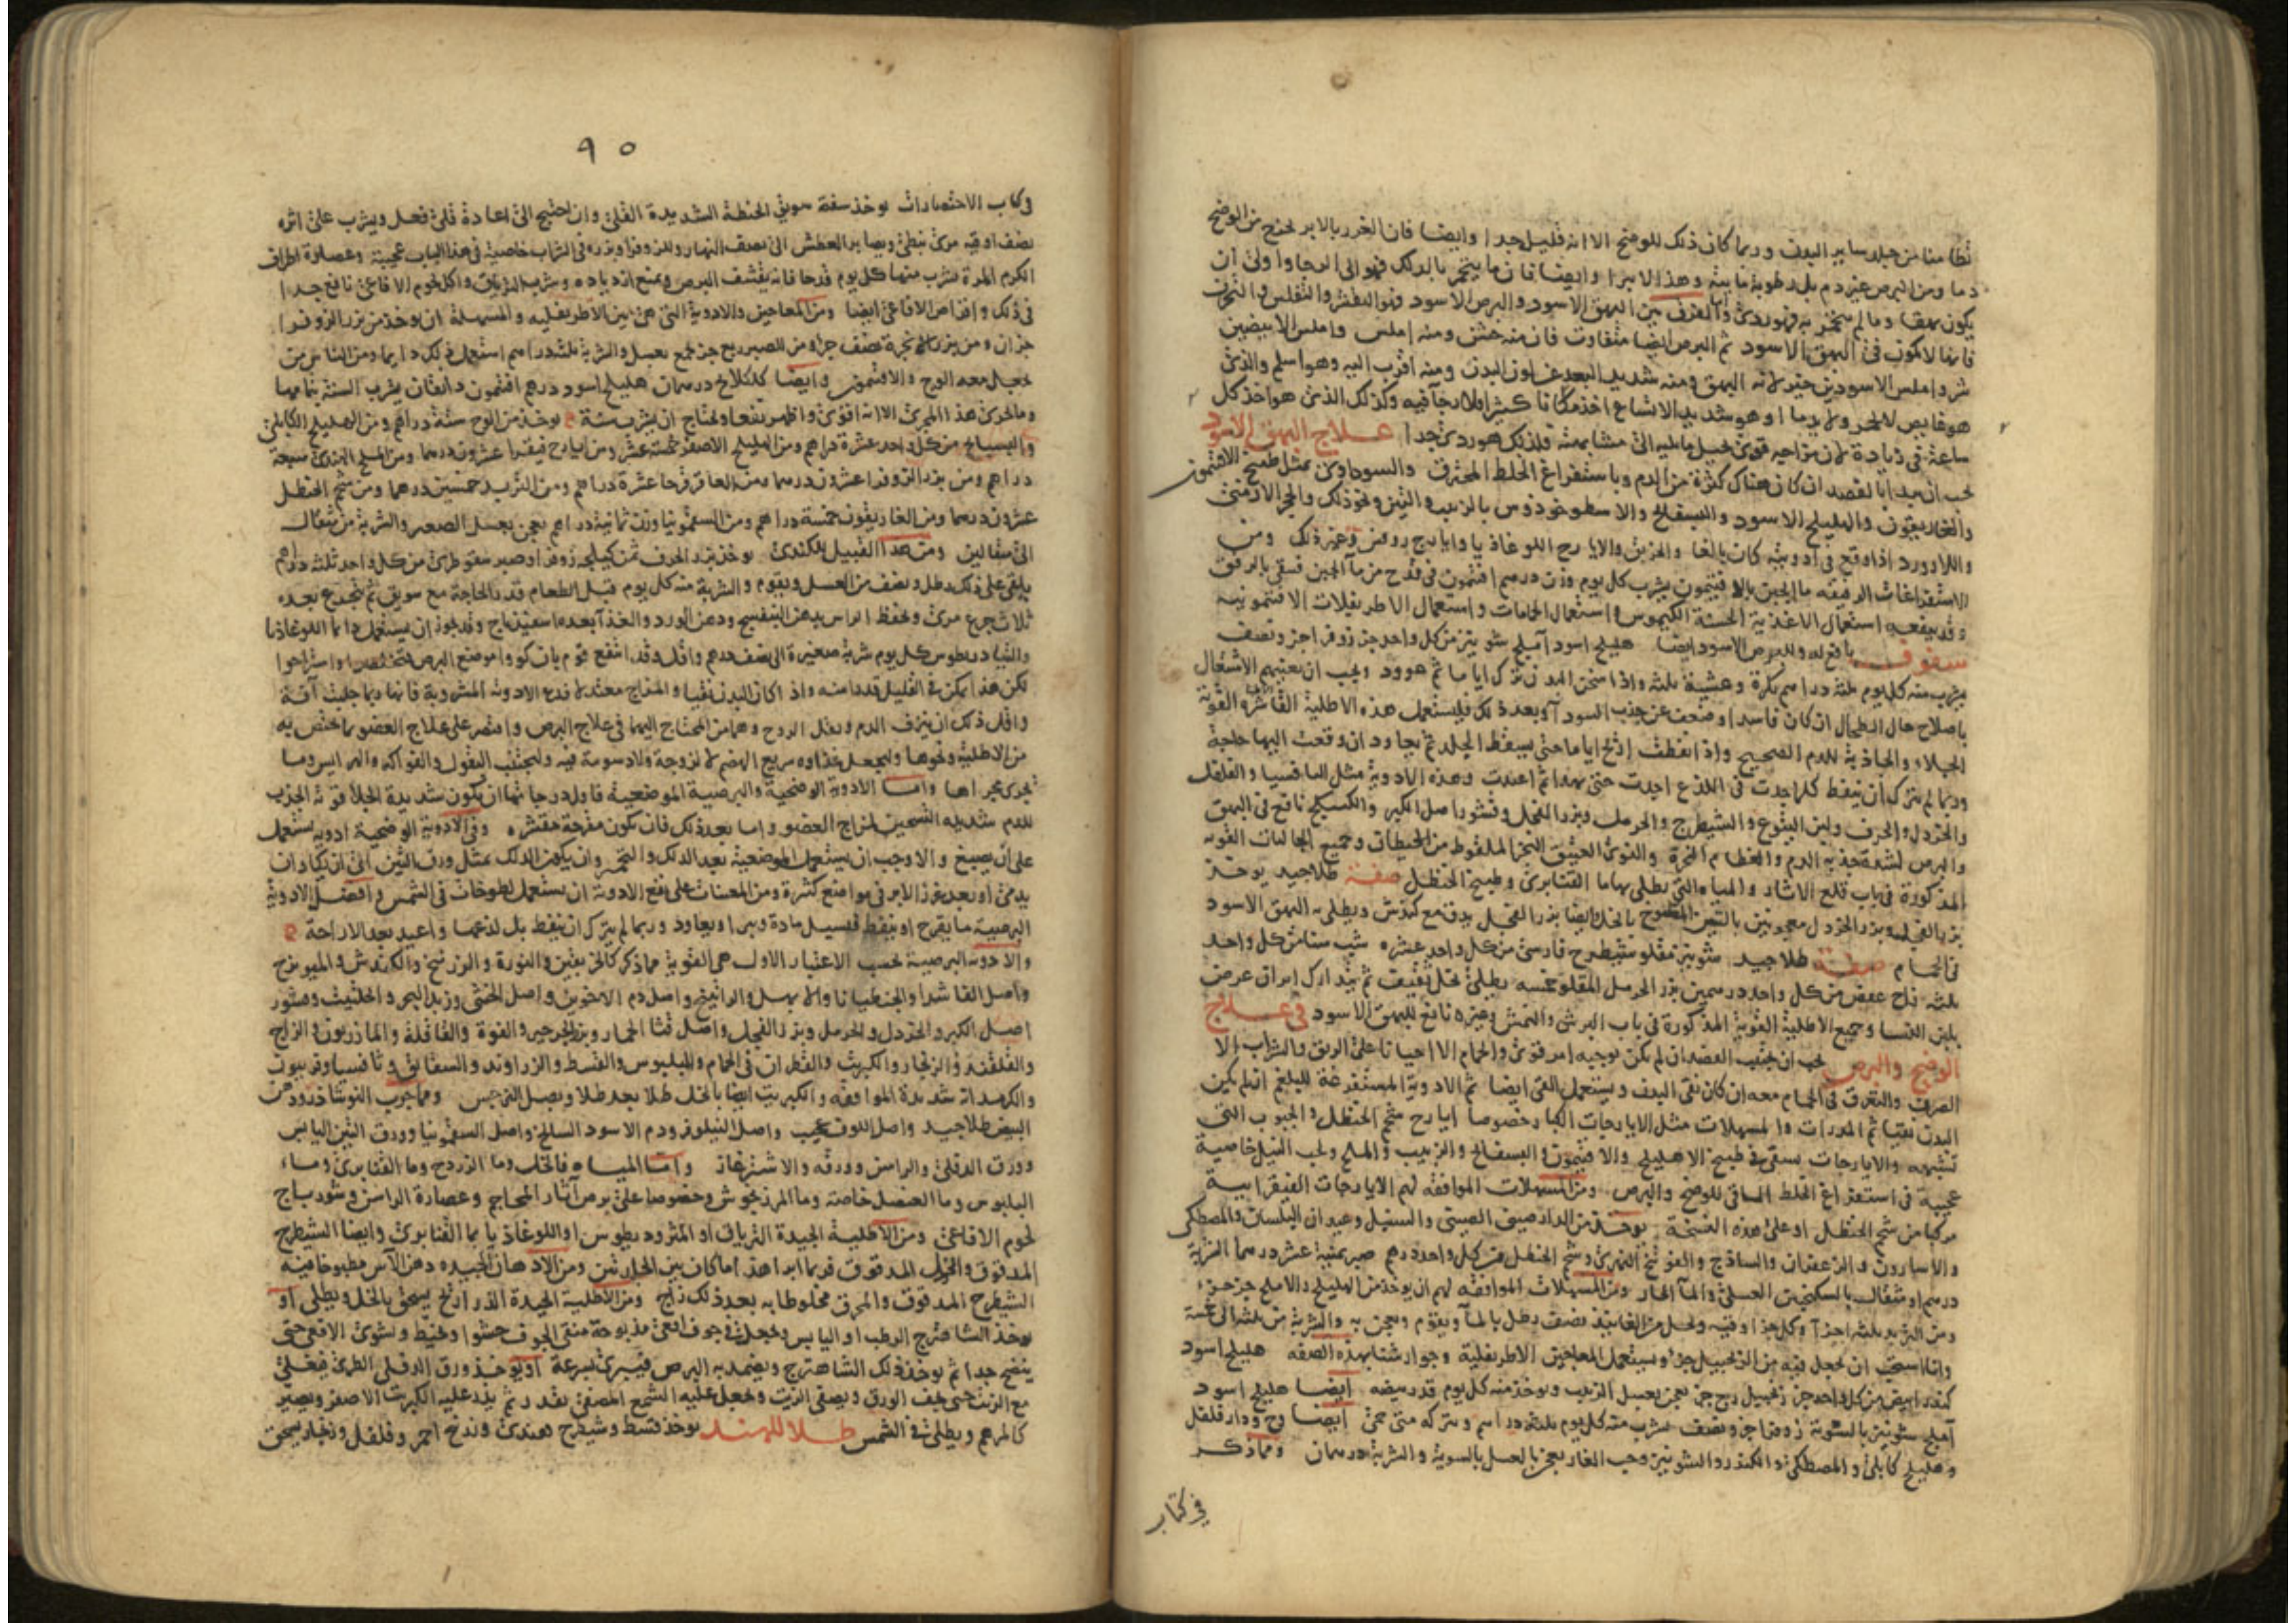 تطامنا من جلد ساير البدن وربما كان ذلك للوضح الا انه قليل جدا وايضا فان الغرز بالابر يخرج من الوضح
دما ومن البرص غير دم بل رطوبة مايية وهذا لا يبرا وايضا فان ما يتحمر بالدلك فهو الى الرجا واولى ان
يكون بهقا وما لم يتحمر به فهو ردى والفرق بين البهق الاسود والبرص الاسود فهو التقشر والتفليس
فانها لا تكون فى البهق الاسود ثم البرص ايضا متفاوت فان منه خشن ومنه املس واملس الابيضين
شر واملس الاسودين خير لانه البهق ومنه شديد البعد عن لون البدن ومنه اقرب اليه وهو اسلم والذى
ساعة فى زيادة لان مزاجه قوى يحيل ما يليه الى مشابهته فلذلك هو ردى جدا علاج البهق الاسود
يجب ان يبدا بالفصد ان كان هناك كثرة من الدم وباستفراغ الخلط المحترق والسوداوى بمثل طبيخ الافتيمون
والغاريقون والهليلج الاسود والبسفايج والاسطوخوذوس بالزبيب والتين ونحو ذلك والحجر الارمنى
واللازورد اذا وقع فى ادويته كان بالغا والخربق والايارج اللوغاذيا وايارج روفس وغير ذلك ومن
الاستفراغات الرفيقة ماء الجبن بالافتيمون يشرب كل يوم وزن درهم افتيمون فى قدح من ماء الجبن فسقى بالرفق
وقد ينفعه استعمال الاغذية الحسنة الكيموس واستعمال الحمامات واستعمال الاطريفلات الافتيمونية
سفوف نافع له وللبرص الاسود ايضا هليلج اسود املج شونيز من كل واحد جز زوفرا جز ونصف
يشرب منه كل يوم ثلثة دراهم بكرة وعشية ثلثة واذا سخن البدن ترك اياما ثم عوود ويجب ان يعتنيهم الاشتغال
باصلاح حال الطحال ان كان فاسدا وضعف عن جذب السودا وبعد ذلك فليستعمل هذه الاطلية القاشرة القوية
الجلاء والجاذبة للدم الصحيح واذا تنفطت اريح اياما حتى يسقط الجلد ثم يعاود ان وقعت اليها حاجة
وربما لم يترك ان ينفط كلما اخذت فى اللذع اخذت حتى يهدا ثم اعيدت وهذه الادوية مثل الثافسيا والفلفل
والخردل والحرف ولبن اليتوع والشيطرج والحرمل وبزر الفجل وقشور اصل الكبر والكسيلج نافع فى البهق
والبرص لشدة جذبه الدم والعظام النخرة والنوى العتيق النخر الملقوط من الحيطان وجميع الجاليات القوية
المذكورة فى باب قلع الاثار والمياه التى يطلى بها ما القنابرى وطبيخ الحنظل صفة طلا جيد يوخذ
بزر الفجل وبزر الخردل معجونين بالتين المطبوخ بالخل وايضا بزر الفجل يدق مع كندش ويطلى به البهق الاسود
فى الحمام صفة طلا جيد شونيز مقلو شيطرج فارسى من كل واحد عشره شب
ثلثة زاج عفص من كل واحد درهمين بزر الحرمل المقلو خمسه يطلى بخل ثقيف ثم يتدارك
بلبن النسا وجميع الاطلية القوية المذكورة فى باب البرش والنمش وغيره نافع للبهق الاسود فى علاج
الوضح والبرص يجب ان يجتنب الفصد ان لم يكن يوجبه امر قوى والحمام الا احيانا على الريق والشراب الا
الصرف والتعرق فى الحمام معه ان كان نقى البدن ويستعمل القى ايضا ثم الادوية المستفرغة للبلغم ان لم يكن
البدن نقيا ثم المدرات والمسهلات مثل الايارجات الكبار خصوصا ايارج شحم الحنظل والحبوب التى
تشبهه والايارجات يسقى فى طبيخ الاهليلج والافتيمون والبسفايج والزبيب والملح ولحب النيل خاصية
عجيبة فى استفراغ الخلط الماقى للوضح والبرص ومن المسهلات الموافقة لهم الايارجات الفيقرايية
مركبا من شحم الحنظل او على هذه النسخة يوخذ من الدارصينى الصينى والسنبل وعيدان البلسان والمصطكى
والاسارون والزعفران والساذج والفوتنج النهرى وشحم الحنظل من كل واحد درهم صبر ثمنية عشر درهما الشربة
درهم او مثقال بالسكنجبين العسلى والماء الحار ومن المسهلات الموافقة لهم ان يوخذ من الهليلج والاملج جز جزء
ومن التربد ثلثة اجزا وكل جزا وقيه ويحل من الفانيذ نصف رطل بالماء ويقوم ويعجن به والشربة من ثلثة الى خمسة
وانا استحب ان يجعل فيه من الزنجبيل جزء ويستعمل المعاجين الاطريفلية وجوارشنا بهذه الصفة هليلج اسود
كندر ابيض من كل واحد جز زنجبيل ربع جز يعجن بعسل الزبيب ويوخذ منه كل يوم قدر بيضه ايضا هليلج اسود
املج شونيز بالسوية زوفرا جز ونصف يشرب منه كل يوم ثلثة دراهم ويتركه متى حمى ايضا وج ودار فلفل
وهليلج كابلى والمصطكى والكندر والشونيز وحب الغار يعجن بالعسل بالسوية والشربة درهمان ومما ذكر
فى كتاب
٩٠
فى كتاب الاختصارات يوخذ سفة سويق الحنطة الشديدة القلى وان احتيج الى اعادة قلى فعل ويشرب على اثره
نصف اوقيه مرى نبطى ويصابر العطش الى نصف النهار وللزوفرا وبزره فى الشراب خاصية فى هذا الباب عجيبة وعصارة اطراف
الكرم المرة يشرب منها كل يوم قدحا فانه يقشف البرص ويمنع ازدياده وشرب الترياق واكل لحوم الافاعى نافع جدا
فى ذلك واقراص الافاعى ايضا ومن المعاجين والادوية التى هى بين الاطريفليه والمسهلة ان يوخذ من بزر الزوفرا
جزان ومن بزر الانجرة نصف جزا ومن الصبر ربع جز يجمع بعسل والشربة ثلثة دراهم استعمل ذلك دايما ومن الناس من
يجعل معه الوج والافتيمون وايضا كلكلانج درهمان هليلج اسود درهم افتيمون دانقان يشرب السنة بتمامها
وما يجرى هذا المجرى الا انه اقوى واظهر نفعا ويحتاج ان يشرب سنة يوخذ من الوج ستة دراهم ومن الهليلج الكابلى
والبسفايج من كل واحد عشرة دراهم ومن الهليلج الاصفر خمسة عشر ومن ايارج فيقرا عشرون درهما ومن الملح الهندى سبعة
دراهم ومن بزر الزوفرا عشرون درهما ومن العاقرقرحا عشرة دراهم ومن التربد خمسين درهما ومن شحم الحنظل
عشرون درهما ومن الغاريقون خمسة دراهم ومن السقمونيا وزن ثمانية دراهم يعجن بعسل الصعتر والشربة من مثقال
الى مثقالين ومن هذا القبيل للكندى يوخذ بزر الحرف ثمن كيلجه زوفرا وصبر سقوطرى من كل واحد ثلثة دراهم
يلقى على ذلك رطل ونصف من العسل ويقوم والشربة منه كل يوم قبل الطعام قدر الحاجة مع سويق ثم يتجرع بعده
ثلاث جرع مرى ويحفظ الراس بدهن البنفسج ودهن الورد والغذا بعده اسفيذباج وقد يجوز ان يستعمل دايما اللوغاذيا
والثبادريطوس كل يوم شربة صغيرة الى نصف درهم واقل وقد انتفع قوم بان كووا موضع البرص واستراحوا
لكن هذا يمكن فى القليل قدرا منه واذا كان البدن نقيا والمزاج معتدلا فدع الادوية المشروبة فانها ربما جلبت افة
واقل ذلك ان ينزف الدم ويقل الروح وهما من المحتاج اليهما فى علاج البرص واقتصر على علاج العضو بما يختص به
من الاطلية ونحوها وليجعل غذاوه سريع الهضم لا لزوجة ولا دسومة فيه وليجتنب البقول والفواكه والهرايس وما
يجرى مجراها واما الادوية الوضحية والبرصية الموضعية فاول درجاتها ان يكون شديدة الجلا قوية الجذب
للدم شديده التسخين لمزاج العضو واما بعد ذلك فان يكون مقرحة مقشره وفى الادوية الوضحية ادوية يستعمل
على ان يصبغ والاوجب ان يستعمل الموضعية بعد الدلك والتحمر وان يكون الدلك بمثل ورق التين الى ان يكاد ان
يدمى او بعد غرز الابر فى مواضع كثيرة ومن المعينات على نفع الادوية ان يستعمل لطوخات فى الشمس وافضل الادوية
البرصية ما يقرح او ينفط فيسيل مادة ويبرا ويعاود وربما لم يترك ان ينفط بل لدغها واعيد بعد الاراحة
والادوية البرصية بحسب الاعتبار الاول هى القوية مما ذكر كالخربقين والنورة والزرنيخ والكندش والميويزج
واصل الفاشرا والجنطيانا والابهل والراتينج واصل دم الاخوين واصل الخنثى وزبد البحر والحلتيت وقشور
اصل الكبر والخردل والحرمل وبزر الفجل واصل قثا الحمار وبزر الجرجير والفوة والقاقلة والماذريون والزاج
والقلقند والزنجار والكبريت والقطران فى الحمام والبلبوس والقسط والزراوند والسقايق وثافسيا وفربيون
شديدة الموافقة والكبريت ايضا بالخل طلا بعد طلا وبصل النرجس ومما جرب النوشاذر ودهن
البيض طلا جيد واصل اللوف عجيب واصل النيلوفر ودم الاسود السالخ واصل السقمونيا وورق التين اليابس
وورق الدفلى والراسن وورقه والاشترغاز واما المياه فالخل وما الزردج وما القنابرى وماء
البلبوس وما العنصل خاصة وما المرزنجوش وخصوصا على برص اثار المحاجم وعصارة الراسن وشورباج
لحوم الافاعى ومن الاطلية الجيدة الترياق او المثرود يطوس او اللوغاذيا بما القنابرى وايضا الشيطرج
المدقوق والخل المدقوق فربما ابرا هذا ما كان بين الجلدتين ومن الادهان الجيده دهن الاس مطبوخا فيه
الشيطرج المدقوق والمحرق مخلوطا به بعد ذلك زاج ومن الاطلية الجيدة الذراريح يسحق بالخل ويطلى او
يوخذ الشاهترج الرطب او اليابس ويجعل فى جوف افعى مذبوحة منقى الجوف حشوا ويخيط ويشوى الافعى حتى
ينضج جدا ثم يوخذ ذلك الشاهترج ويضمد به البرص فيبرى بسرعة او يوخذ ورق الدفلى الطرى فيغلى
مع الزيت حتى يجف الورق ويصفى الزيت ويجعل عليه الشمع المصفى بقدر ثم يذر عليه الكبريت الاصفر ويصير
كالمرهم ويطلى فى الشمس طلا للهند يوخذ قسط وشيطرج هندى وزرنيخ احمر وفلفل وزنجار يسحق